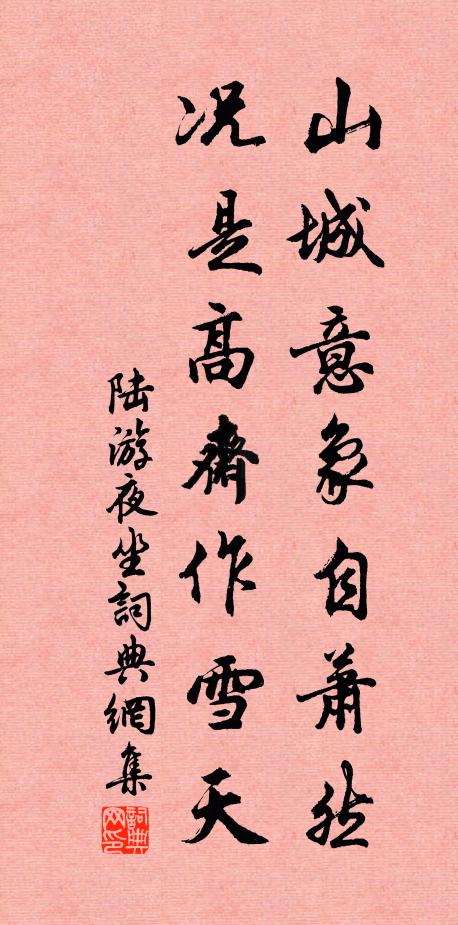 山城意象自蕭然
况是高齋作雪天
陆游夜坐詞典網集
詞典网印